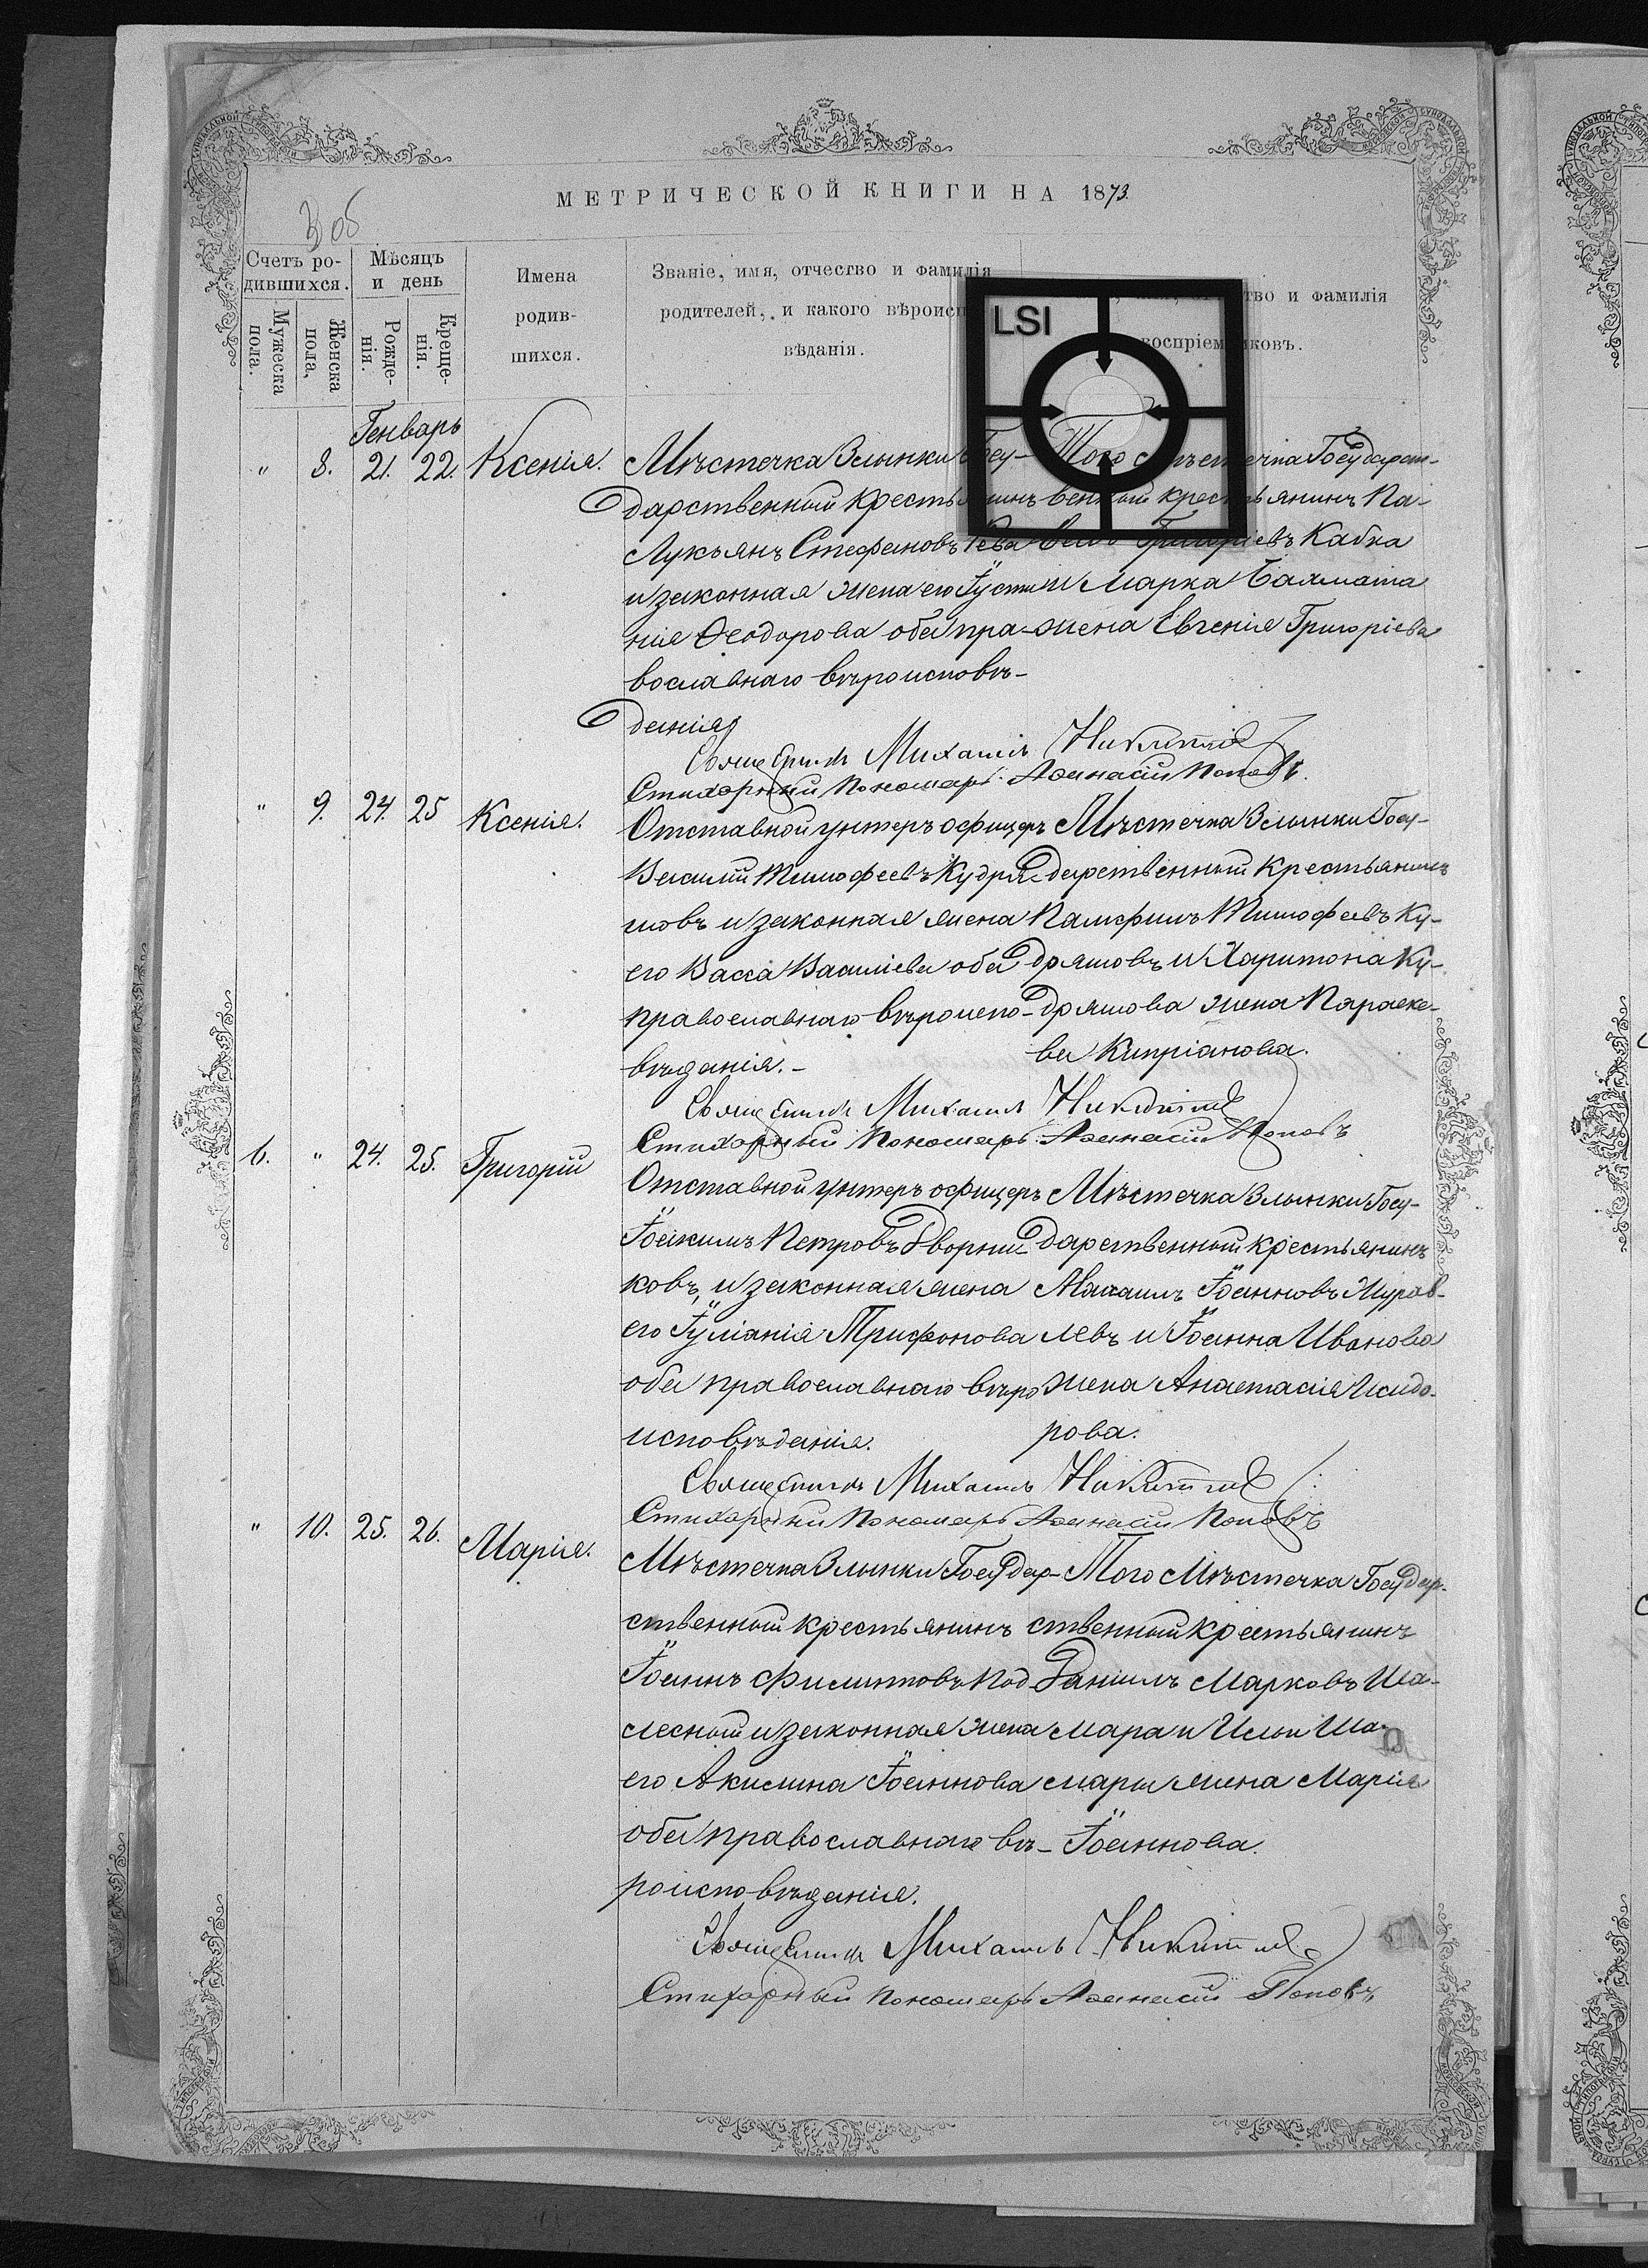 МЕТРИЧЕСКОЙ КНИГИ НА 1873.
3 об
Счетъ ро-
дившихся.
Мужеска
пола.
Женска
пола,
Мѣсяцъ
и день
Рожде-
нія.
Креще-
нія.
Имена
родив-
шихся.
Званіе, имя, отчество и фамилія
родителей, и какого вѣроисп
вѣданія.
и фамилія
воспріемниковъ.
Генварь
" 8. 21. 22. Ксенія.
Мѣстечка Злынки Госу-
дарственный крестьянинъ
Лукьянъ Стефановъ Рева
и законная жена его Іусти
нія Ѳеодорова оба пра-
вославнаго вѣроисповѣ-
данія
Того мѣстечка Государст-
венный крестьянинъ Па-
Григоріевъ Кабка
и Марка Бахмата
жена Евгенія Григоріева
Священникъ Михаилъ Никитскій
Стихарный Пономарь Аѳанасій Поповъ.
" 9. 24. 25 Ксенія.
Отставной унтеръ офицеръ
Василій Тимофеевъ Кудря-
шовъ и законная жена
его Васса Василіева оба
православнаго вѣроиспо-
вѣданія.-
Мѣстечка Злынки Госу-
дарственный крестьянинъ
Памфилъ Тимофеевъ Ку-
дряшовъ и Харитона Ку-
дряшова жена Параске-
ва Кипріанова.
Священникъ Михаилъ Никитскій
Стихарный Пономарь Аѳанасій Поповъ
6. " 24. 25. Григорій
Отставной унтеръ офицеръ
Іоакимъ Петровъ Дворни-
ковъ, и законная жена
его Іуліанія Трифонова
оба православнаго вѣро
исповѣданія.
Мѣстечка Злынки Госу-
дарственный крестьянинъ
Михаилъ Іоанновъ Журав-
левъ и Іоанна Иванова
жена Анастасія Исидо-
рова.
Священникъ Михаилъ Никитскій
Стихарный Пономарь Аѳанасій Поповъ
" 10. 25. 26. Марія.
Мѣстечка Злынки Государ-
ственный крестьянинъ
Іоаннъ Филиповъ Под-
лесный и законная жена
его Акилина Іоаннова
оба православнаго вѣ-
роисповѣданія.
Того Мѣстечка Государ-
ственный крестьянинъ
Даніилъ Марковъ Ша-
мара и Ильи Ша-
мары жена Марія
Іоаннова.
Священникъ Михаилъ Никитскій
Стихарный Пономарь Аѳанасій Поповъ
LSI